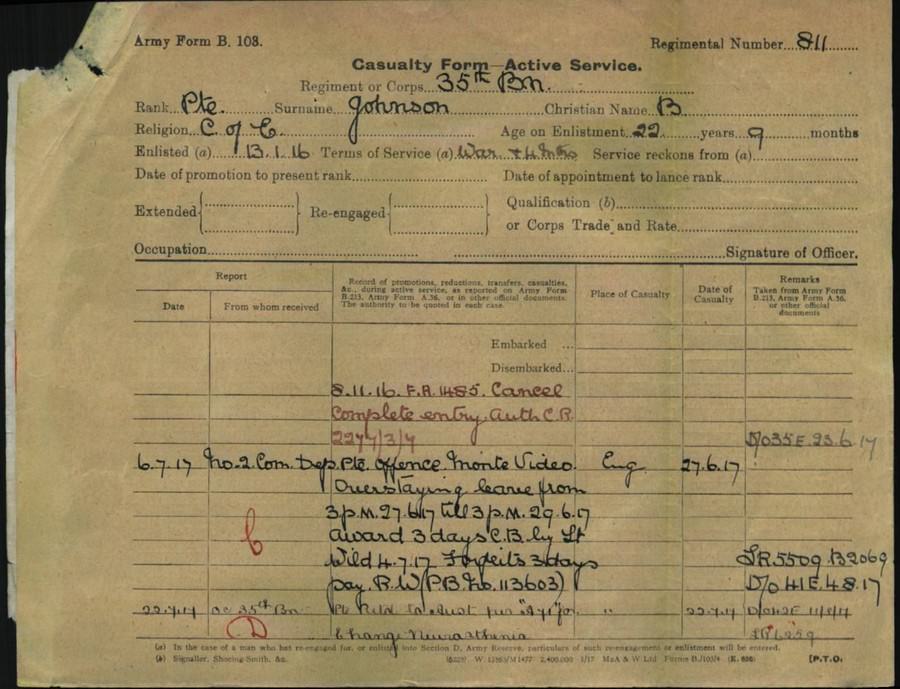 Army Form B. 103.
Regimental Number 811
Casualty Form—Active Service.
Regiment or Corps 35th Bn.
Rank Pte. Surname Johnson Christian Name B
Religion C of E. Age on Enlistment 22 years 9 months
Enlisted (a) 13.1.16 Terms of Service (a) War + 4 mths Service reckons from (a)
Date of promotion to present rank Date of appointment to lance rank
Extended Re-engaged Qualification (b)
or Corps Trade and Rate
Occupation Signature of Officer.
Report
Date From whom received
Record of promotions, reductions, transfers, casualties,
&c., during active service, as reported on Army Form
B.213, Army Form A.36, or in other official documents.
The authority to be quoted in each case.
Place of Casualty
Date of
Casualty
Remarks
Taken from Army Form
B.213, Army Form A.36,
or other official
documents
Embarked ...
Disembarked...
8.11.16. F.R. 1485. Cancel
Complete entry. Auth C.R.
2277/3/7
D/O35E 23.6.17
6.7.17 No. 2. Com. Dep. Pte. Offence. Monte Video. Eng. 27.6.17
Overstaying leave from
3 p.m. 27.6.17 till 3 p.m. 29.6.17
award 3 days C.B. by Lt
Wild 4.7.17 Forfeits 3 days
pay. R.W. (P.B. No. 113603)
LR5509. B2069
D/o 41E 4.8.17
22.7.17 oc 35th Bn Pte Retd to Aust per "Ayr" for " 22.7.17
D
Change Neurasthenia
(a) In the case of a man who has re-engaged for, or enlisted into Section D, Army Reserve, particulars of such re-engagement or enlistment will be entered.
(b) Signaller, Shoeing-Smith, &c. W 12863/M1477 2,400,000 1/17 McA & W Ltd Forms B./103/4 (E. 656) [P.T.O.